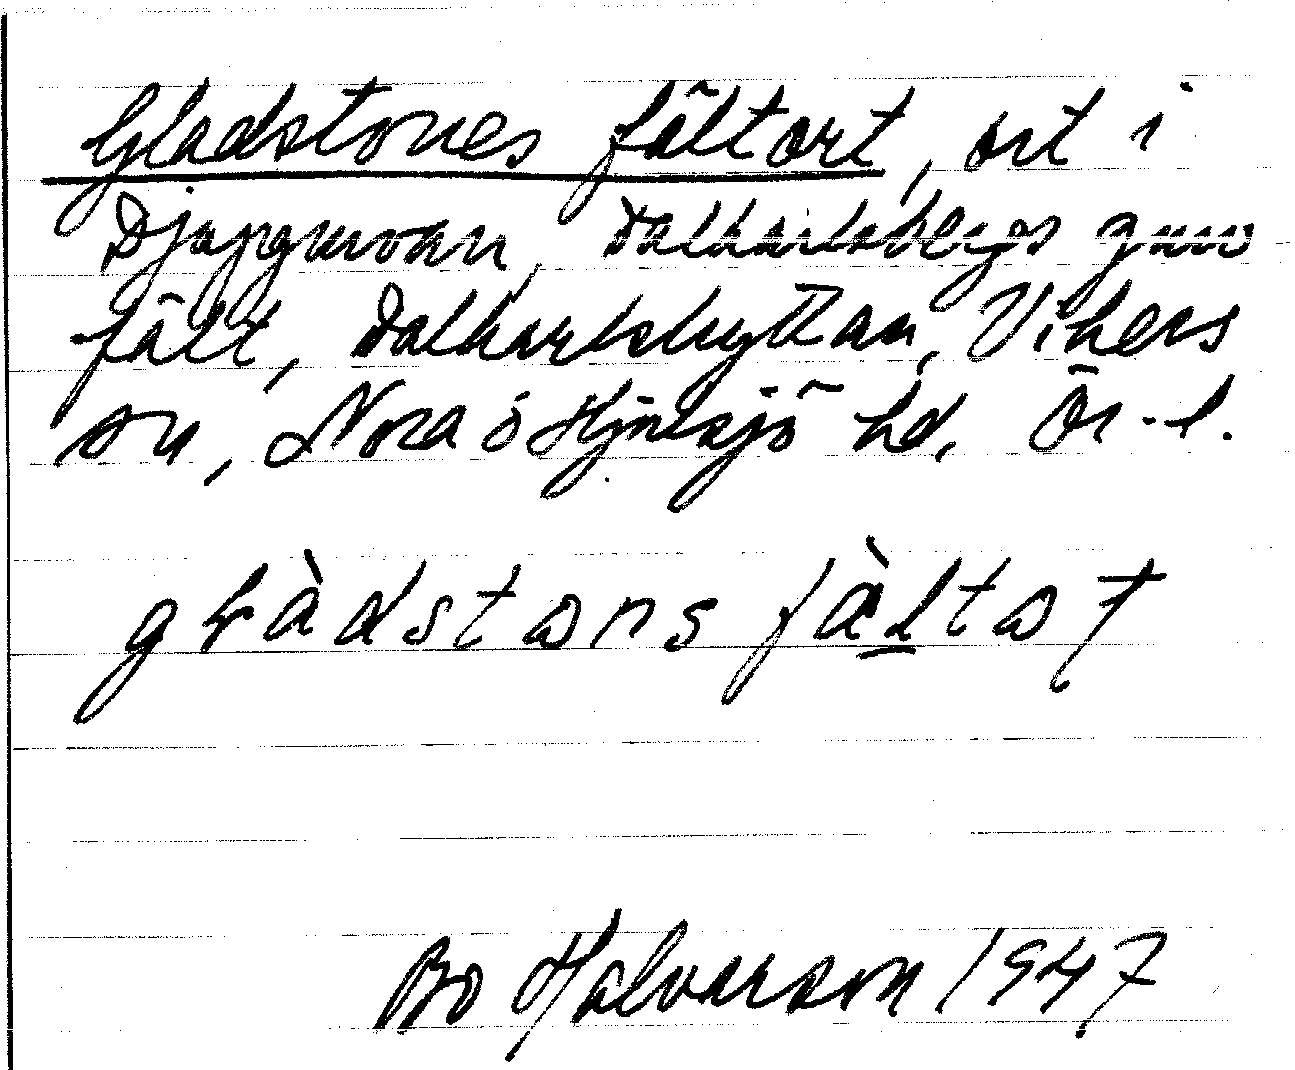 Gladstones fältort, ort i
Djupgruvan, Dalkarlsbergs gruv
fält, Dalkarlshyttan, Vikers
sn, Nora ó Hjulsjö hd. Ör-l.
gràdstons fàltot
Bo Halvarson 1947